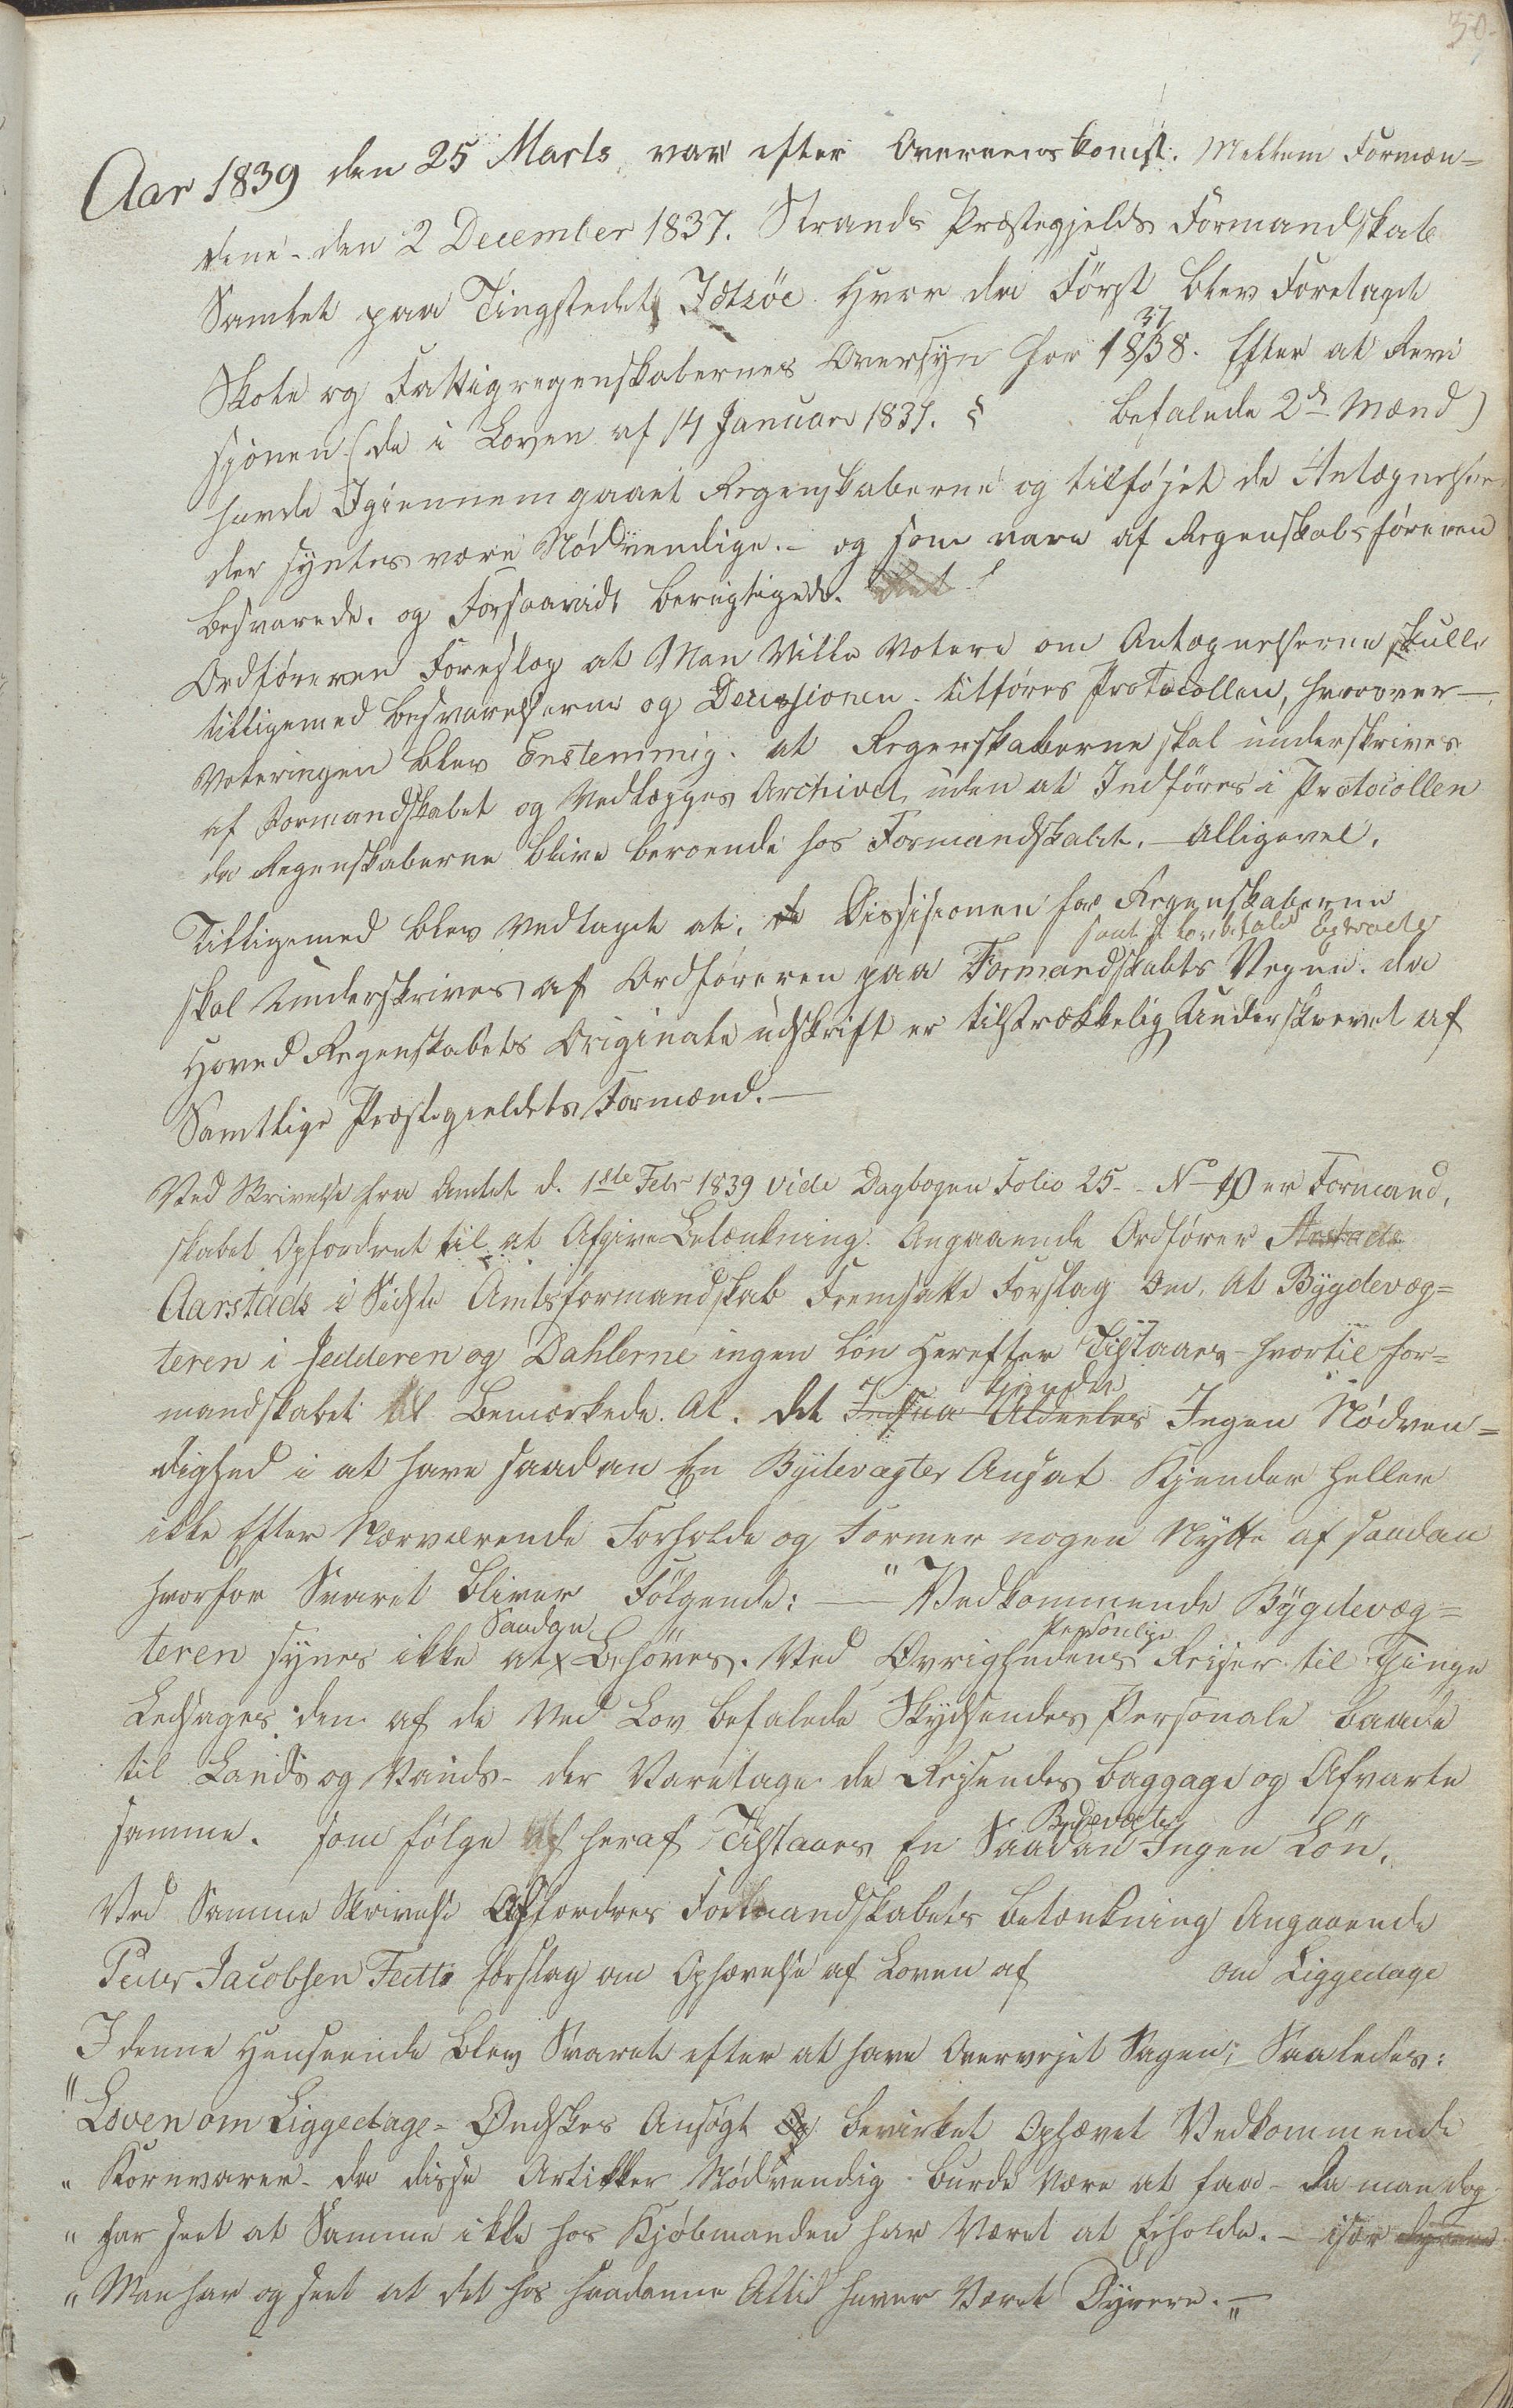 30.
Aar 1839 den 25 Marts, var efter Overenskomst. Mellem Formæn-
dene - den 2 December 1837. Strands Præstegjelds Formandskab
Samlet paa Tingstedet Idsöe. Hvor da Först blev Foretaget
Skole og Fattigregenskabernes Oversyn for 18 37/38. Efter at Revi
sjonen (de i Loven af 14 Januar 1837. § befalede 2de Mænd)
havde Igiennemgaaet Regenskaberne og tilføjet de Antægnelser
der syntes være Nødvendige. - og som vare af Regenskabsføreren
besvarede. og Forsaavidt berigtigede.
Ordföreren Foreslog at Man Ville Votere om Antægnelserne skulle
tilligemed besvarelserne og Decissionen tilføres Protocollen, hvorover -
Voteringen blev Enstemmig. at Regenskaberne skal underskrives
af Formandskabet og Vedlægges Archivet, uden at Indføres i Protocollen
da Regenskaberne blive beroende hos Formandskabet. - Alligevel.
Tilligemed blev Vedtaget at, de Dissisionen for Regenskaberne
samt de befalede Extracter
skal Underskrives af Ordföreren paa Formandskabts Vegne. da
Hoved Regenskabets Originale udskrift er tilstrækkelig Underskrevet af
Samtlige Præstegieldets Formænd. -
Ved Skrivelse fra Amtet d. 1ste Febr 1839 vide Dagbogen Folio 25 - No 10 er Formand,
skabet Opfordret til at Afgive Betænkning. Angaaende Ordfører Aarstads
Aarstads i Sidste Amtsformandskab Fremsatte Forslag Om, At Bygdevæg=
teren i Jedderen og Dahlerne ingen Løn Herefter Tilstaaes - hvortil for=
kiender
mandskabet Bemærkede. At. det Indsaa Aldeeles Ingen Nødven=
dighed i at have saadan En Bydevægter Ansat Kjender heller
ikke Efter Nærværende Forholde og Former nogen Nytte af saadan
hvorfor Svaret bliver Følgende: - " Vedkommende Bÿgdevæg=
Saadan Personlige
teren synes ikke at Behøves. Ved Øvrighedens Reiser til Tinge
Ledsages den af de Ved Lov befalede Skydsendes Personale baade
til Lands og Vands - der Varetage de Reisendes baggage og Afvarte
Bydevægter
samme. som følge heraf Tilstaaes En Saadan Ingen Løn.
Ved Samme Skrivelse Affordres Formandskabets betænkning Angaaende
Peder Jacobsen Tøtte forslag om Ophævelse af Loven af om Liggedage
I denne Henseende blev Svaret efter at have Overvejet Sagen; Saaledes:
" Loven om Liggedage - Ønskes Ansøgt og bevirket Ophævet Vedkommende
" Kornvarer - da disse Artikler Nødvendig burde være at faae - da man dog
" har seet at Samme ikke hos Kjøbmanden har Været at Erholde. - især dyrere
" Man har og seet at det hos saadanne Altid haver Været Dyrere. - "